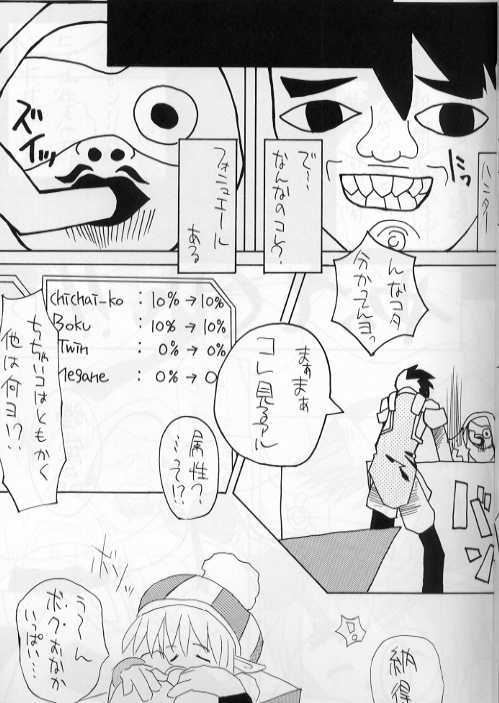 ハンター
にっ
で〜
なんなのコレ?
フォニュエール
ある
ズイッ
んなコタ
分かってんヨっ
まぁまぁ
コレ見るアル
バン
chichai-ko : 10% → 10%
Boku : 10% → 10%
Twin : 0% → 0%
Megane : 0% → 0
属性?
って!?
ちっちゃいコはともかく
他は何ヨ!?
納得
う〜ん
ボクおなか
いっぱい…